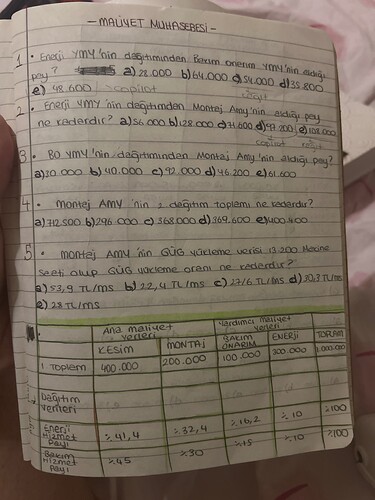 - MALİYET MUHASEBESİ -
1 • Enerji YMY'nin dağıtımından Bakım onarım YMY'nin aldığı
pay? a) 28.000 b) 64.000 c) 54.000 d) 35.800
e) 48.600 copilot
2 • Enerji YMY'nin dağıtımından Montaj AMY'nin aldığı pay
ne kadardır? a) 56.000 b) 128.000 c) 71.600 d) 97.200 e) 108.000
copilot
3 • BO YMY'nin dağıtımından Montaj AMY'nin aldığı pay?
a) 30.000 b) 40.000 c) 92.000 d) 46.200 e) 61.600
4 • Montaj AMY'nin 2 dağıtım toplamı ne kadardır?
a) 712.500 b) 296.000 c) 368.000 d) 369.600 e) 400.400
5 • MONTAJ AMY'nin GÜG yükleme verisi 13.200 Makine
Saati olup GÜG yükleme oranı ne kadardır?
a) 53,9 TL/ms b) 22,4 TL/ms c) 27,6 TL/ms d) 30,3 TL/ms
e) 28 TL/ms
Ana maliyet yerleri Yardımcı maliyet yerleri
KESİM MONTAJ BAKIM ONARIM ENERJİ TOPLAM
1 Toplam 400.000 200.000 100.000 300.000 1.000.000
Dağıtım verileri
Enerji Hizmet Payı %41,4 %32,4 %16,2 %10 %100
Bakım Hizmet Payı %45 %30 %15 %10 %100